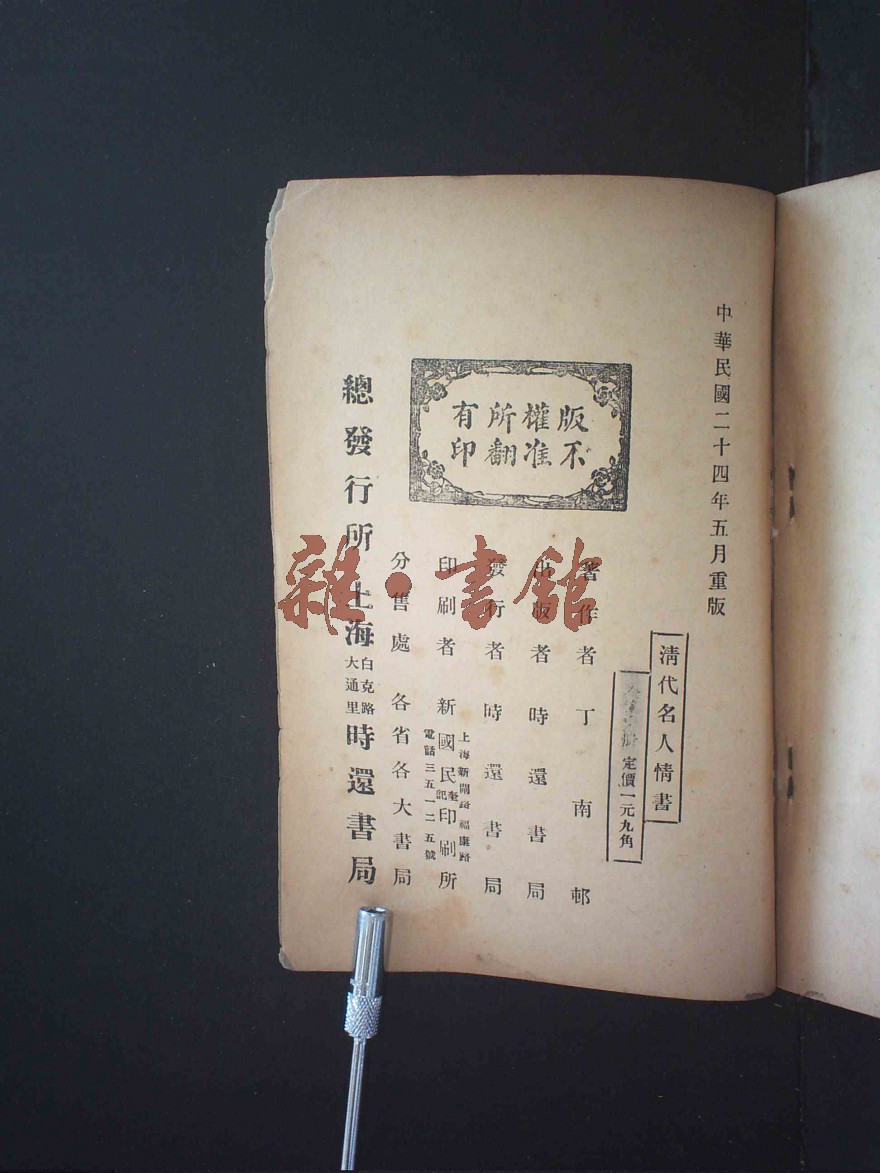 中華民國二十四年五月重版
清代名人情書
定價一元九角
版權所有
不准翻印
著作者 丁南邨
出版者 時還書局
發行者 時還書局
上海新閘路福康路
印刷者 新國民印刷所
電話三五一二五號
分售處 各省各大書局
總發行所 上海 白克路大通里 時還書局
雜·書館